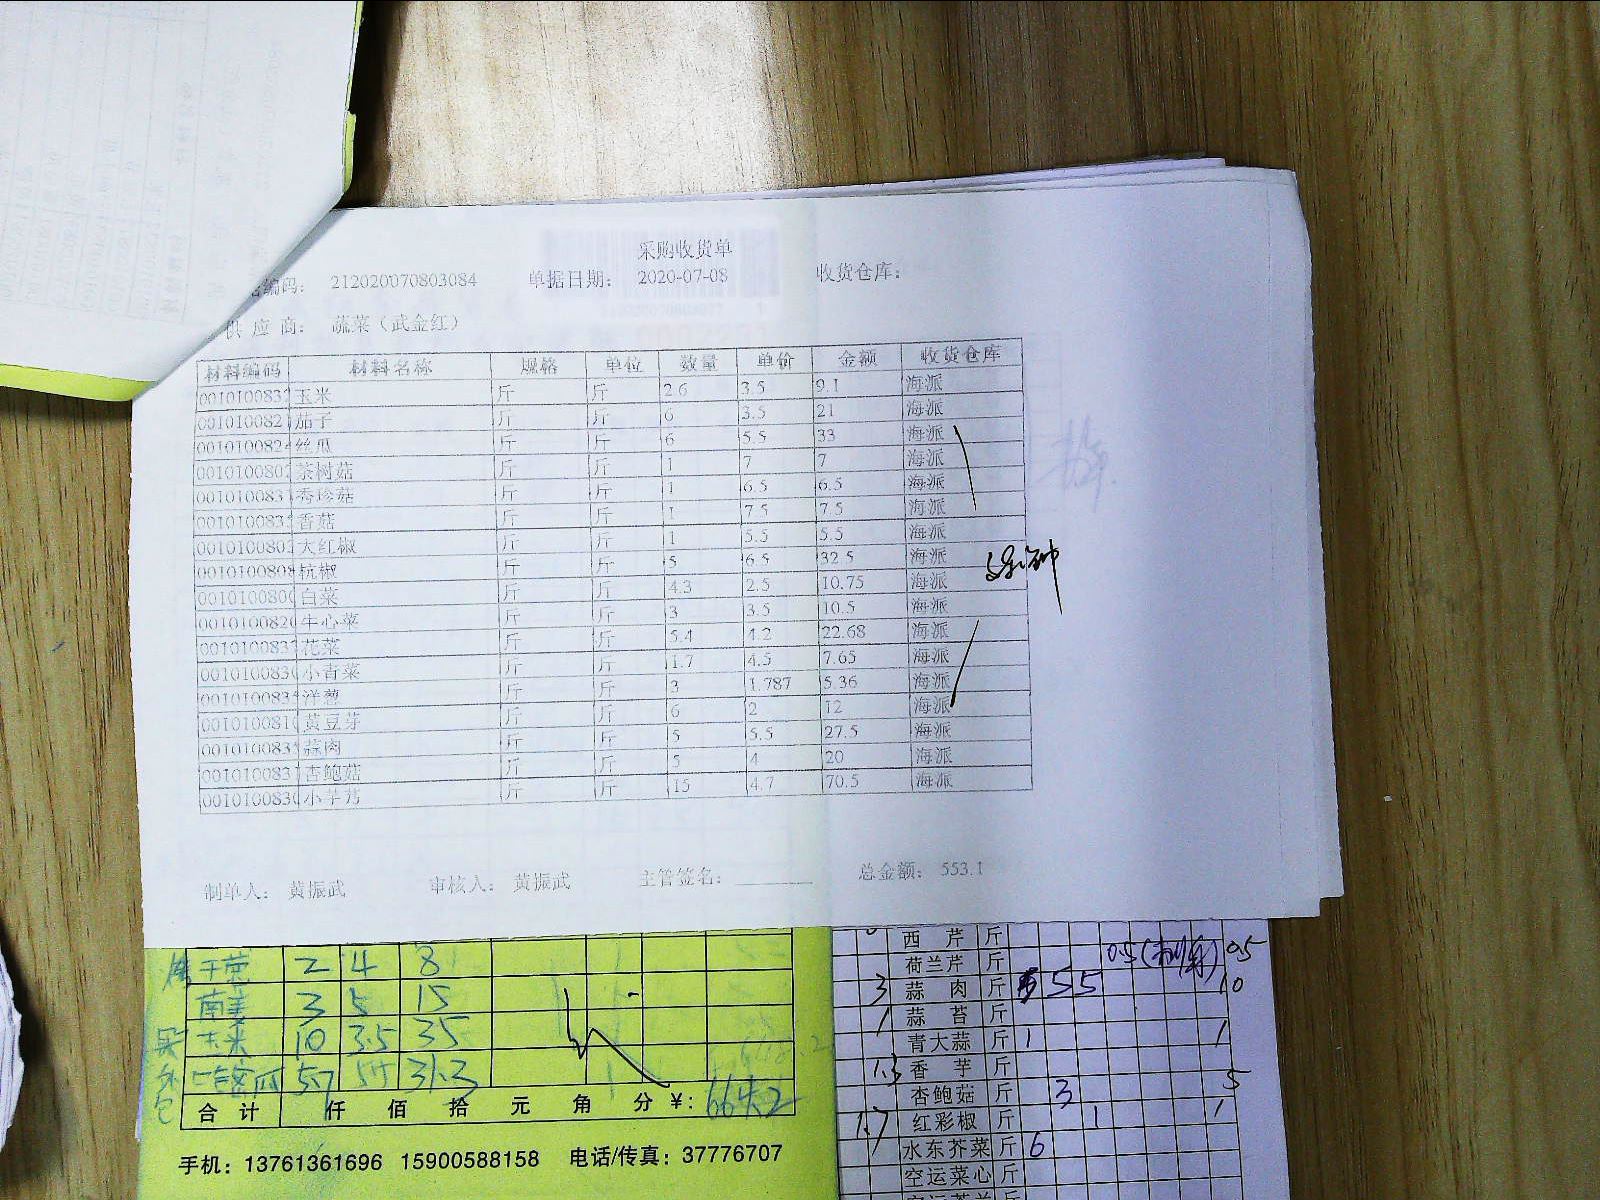 采购收货单
编码： 212020070803084 单据日期： 2020-07-08 收货仓库：
供 应 商： 蔬菜（武金红）
材料编码 材料名称 规格 单位 数量 单价 金额 收货仓库
001010083 玉米 斤 斤 2.6 3.5 9.1 海派
001010082 茄子 斤 斤 6 3.5 21 海派
001010082 丝瓜 斤 斤 6 5.5 33 海派
001010080 茶树菇 斤 斤 1 7 7 海派
001010083 秀珍菇 斤 斤 1 6.5 6.5 海派
001010083 香菇 斤 斤 1 7.5 7.5 海派
001010080 大红椒 斤 斤 1 5.5 5.5 海派
001010080 杭椒 斤 斤 5 6.5 32.5 海派
001010080 白菜 斤 斤 4.3 2.5 10.75 海派
001010082 牛心菜 斤 斤 3 3.5 10.5 海派
001010083 花菜 斤 斤 5.4 4.2 22.68 海派
001010083 小青菜 斤 斤 1.7 4.5 7.65 海派
001010083 洋葱 斤 斤 3 1.787 5.36 海派
001010081 黄豆芽 斤 斤 6 2 12 海派
001010083 蒜肉 斤 斤 5 5.5 27.5 海派
001010083 杏鲍菇 斤 斤 5 4 20 海派
001010083 小芋艿 斤 斤 15 4.7 70.5 海派
制单人： 黄振武 审核人： 黄振武 主管签名： 总金额： 553.1
2 4 8
南美 3 5 15
玉米 10 3.5 35
合 计 仟 佰 拾 元 角 分 ¥:
手机：13761361696 15900588158 电话/传真：37776707
西 芹 斤
荷兰芹 斤 0.5 0.5
3 蒜 肉 斤 5 5 10
1 蒜 苔 斤
青大蒜 斤 1 1
1.3 香 芋 斤
杏鲍菇 斤 3 5
1.7 红彩椒 斤 1 1
水东芥菜 斤 6
空运菜心 斤